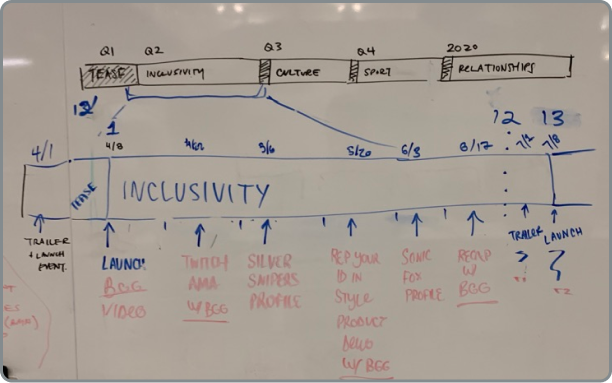 Q1 Q2 Q3 Q4 2020
TEASE INCLUSIVITY CULTURE SPORT RELATIONSHIPS
1 12 13
4/1 4/8 5/6 5/20 6/3 6/17 7/8
TEASE INCLUSIVITY
TRAILER
+ LAUNCH
EVENT.
LAUNCH
BGG
VIDEO
TWITCH
AMA
W/ BGG
SILVER
SNIPERS
PROFILE
REP YOUR
ID IN
STYLE
PRODUCT
DEMO
W/ BGG
SONIC
FOX
PROFILE
RECAP
W/
BGG
TRAILER
?
LAUNCH